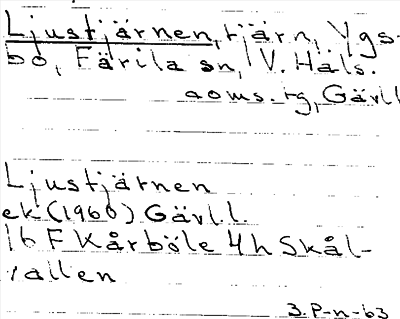 Ljustjärnen, tjärn, Ygs-
bo, Färila sn, V. Häls.
doms.-tg, Gävll
Ljustjärnen
ek (1960) Gävl.l.
16 F Kårböle 4h Skål-
vallen
3.P-n-63